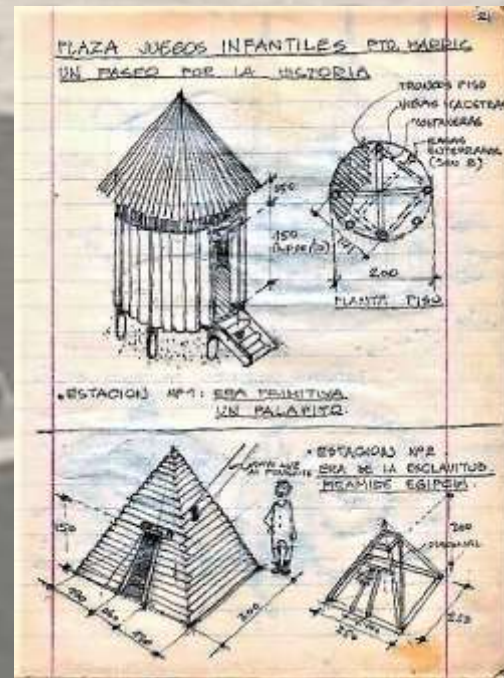 21
PLAZA JUEGOS INFANTILES PTO. HARRIS
UN PASEO POR LA HISTORIA
TRONCOS PISO
VIGAS MAESTRAS
COSTANERAS
(SON 8)
150
150
200
PLANTA PISO
• ESTACION Nº1: ERA PRIMITIVA
UN PALAFITO.
• ESTACION Nº2
ERA DE LA ESCLAVITUD
PIRAMIDE EGIPCIA
150
200
DIAGONAL
200
250
250